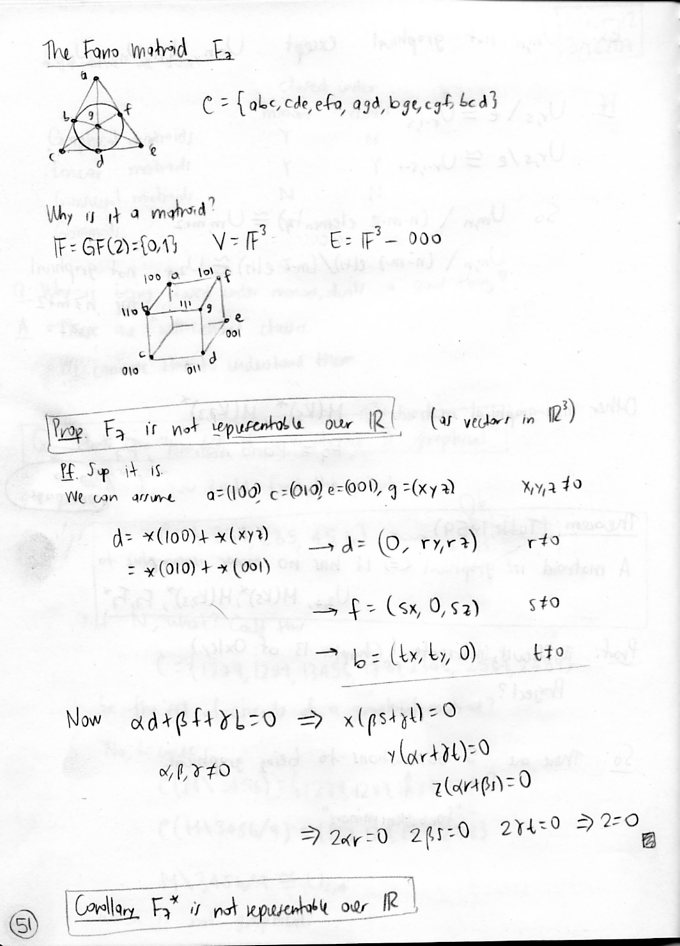 The Fano matroid F₇
a
b g f
c d e
C = {abc, cde, efa, agd, bge, cgf, bcd}
Why is it a matroid?
𝔽 = GF(2) = {0,1} V = 𝔽³ E = 𝔽³ − 000
100 a 101 f
110 b 111 g
e
001
c d
010 011
Prop F₇ is not representable over ℝ (as vectors in ℝ³)
Pf. Sup it is.
We can assume a=(100) c=(010) e=(001), g=(xyz) x,y,z ≠0
d = *(100) + *(xyz) → d = (0, ry, rz) r≠0
= *(010) + *(001)
→ f = (sx, 0, sz) s≠0
→ b = (tx, ty, 0) t≠0
Now αd+βf+γb=0 ⇒ x(βs+γt)=0
α,β,γ≠0 y(αr+γt)=0
z(αr+βs)=0
⇒ 2αr=0 2βs=0 2γt=0 ⇒ 2=0
Corollary F₇* is not representable over ℝ
51